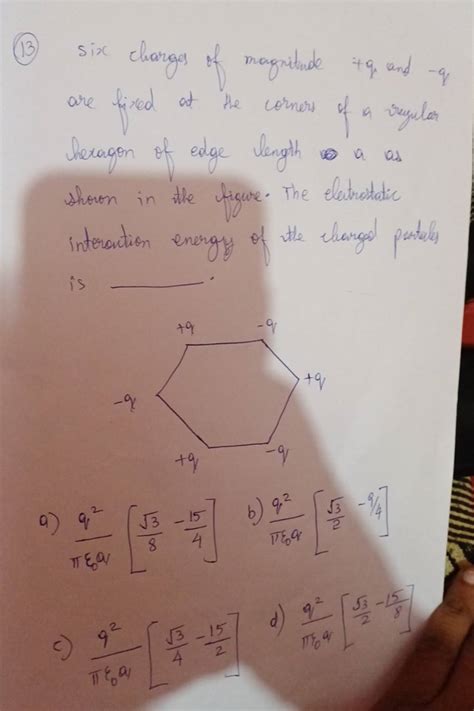 13 six charges of magnitude +q and -q
are fixed at the corners of a regular
hexagon of edge length a as
shown in the figure. The electrostatic
interaction energy of the charged particles
is ________.
+q -q
-q +q
+q -q
a) q²/πε₀a [√3/8 - 15/4] b) q²/πε₀a [√3/2 - 9/4]
c) q²/πε₀a [√3/4 - 15/2] d) q²/πε₀a [√3/2 - 15/8]